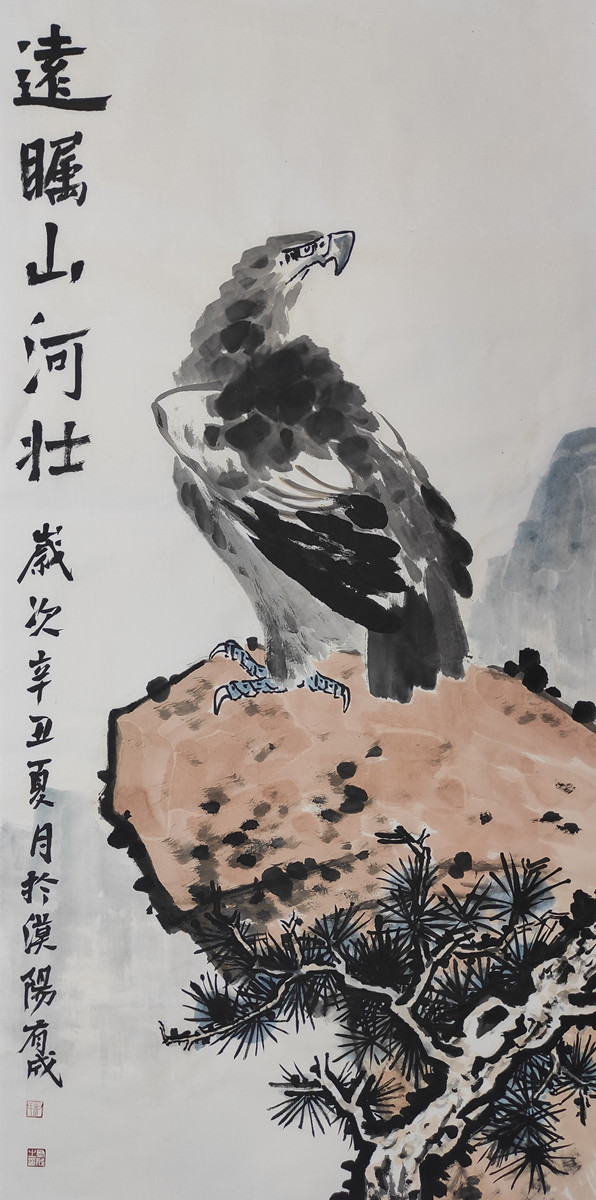 遠瞩山河壮
歲次辛丑夏月於漠陽有成